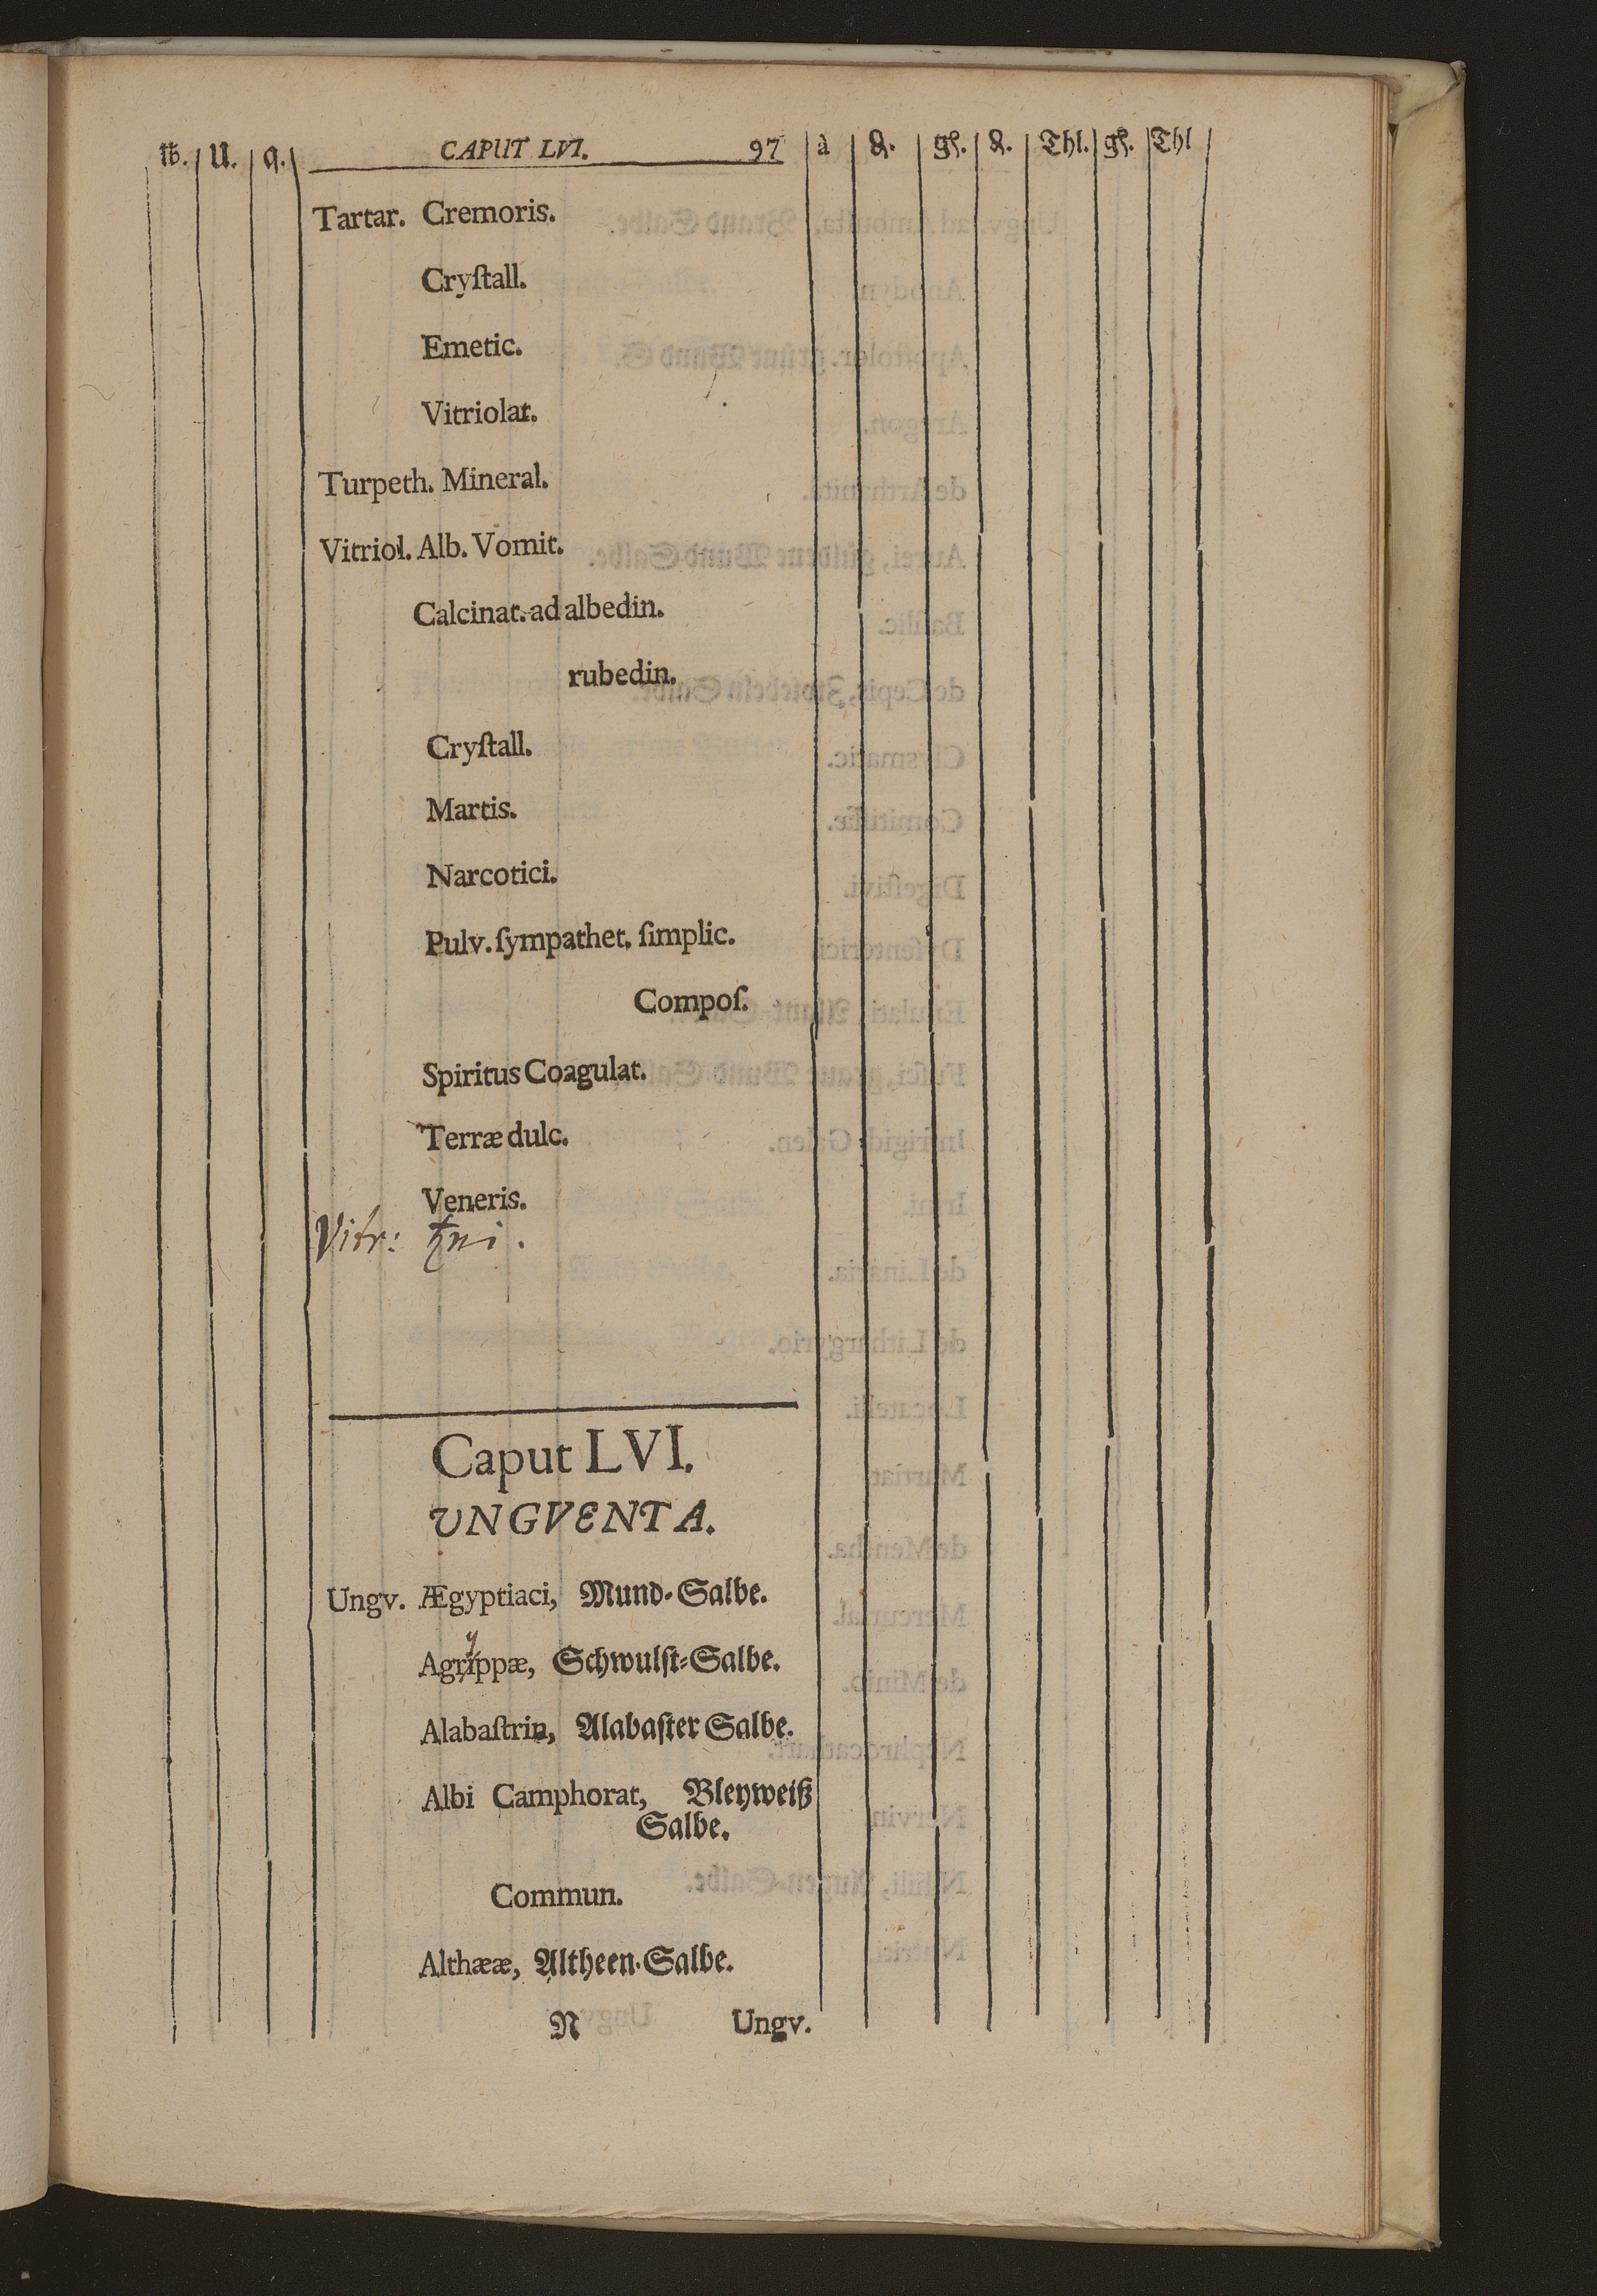 ℔. U. q. CAPUT LVI. 97 à ₰. gl. ₰. Thl. gl. Thl
Tartar. Cremoris.
Cryſtall.
Emetic.
Vitriolat.
Turpeth. Mineral.
Vitriol. Alb. Vomit.
Calcinat. ad albedin.
rubedin.
Cryſtall.
Martis.
Narcotici.
Pulv. ſympathet. ſimplic.
Compoſ.
Spiritus Coagulat.
Terræ dulc.
Veneris.
Vitr: ♄ni.
Caput LVI.
UNGVENTA.
Ungv. Ægyptiaci, Mund-Salbe.
y
Agrippæ, Schwulſt-Salbe.
Alabaſtrin, Alabaſter Salbe.
Albi Camphorat, Bleyweiß
Salbe.
Commun.
Althææ, Altheen-Salbe.
N Ungv.